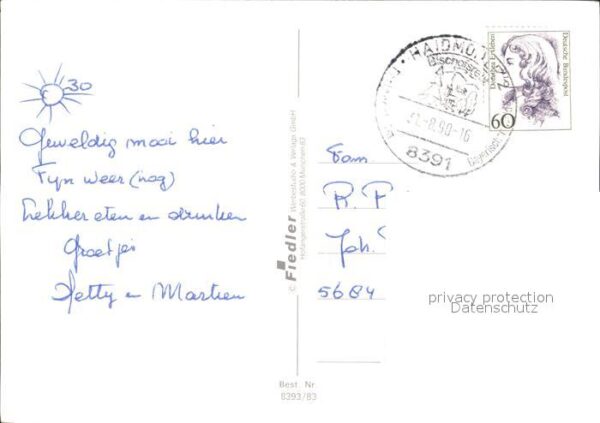 30
Geweldig mooi hier
Fijn weer (nog)
Lekker eten en drinken
Groetjes
Jetty en Martien
© Fiedler Werbestudio & Verlags GmbH
8000 München 83
Best. Nr.
8393/83
HAIDMÜHLE
Bischofsreut
-8.90-16
8391
Deutsche Bundespost
60
Fam
R. P
Joh.
5684
privacy protection
Datenschutz